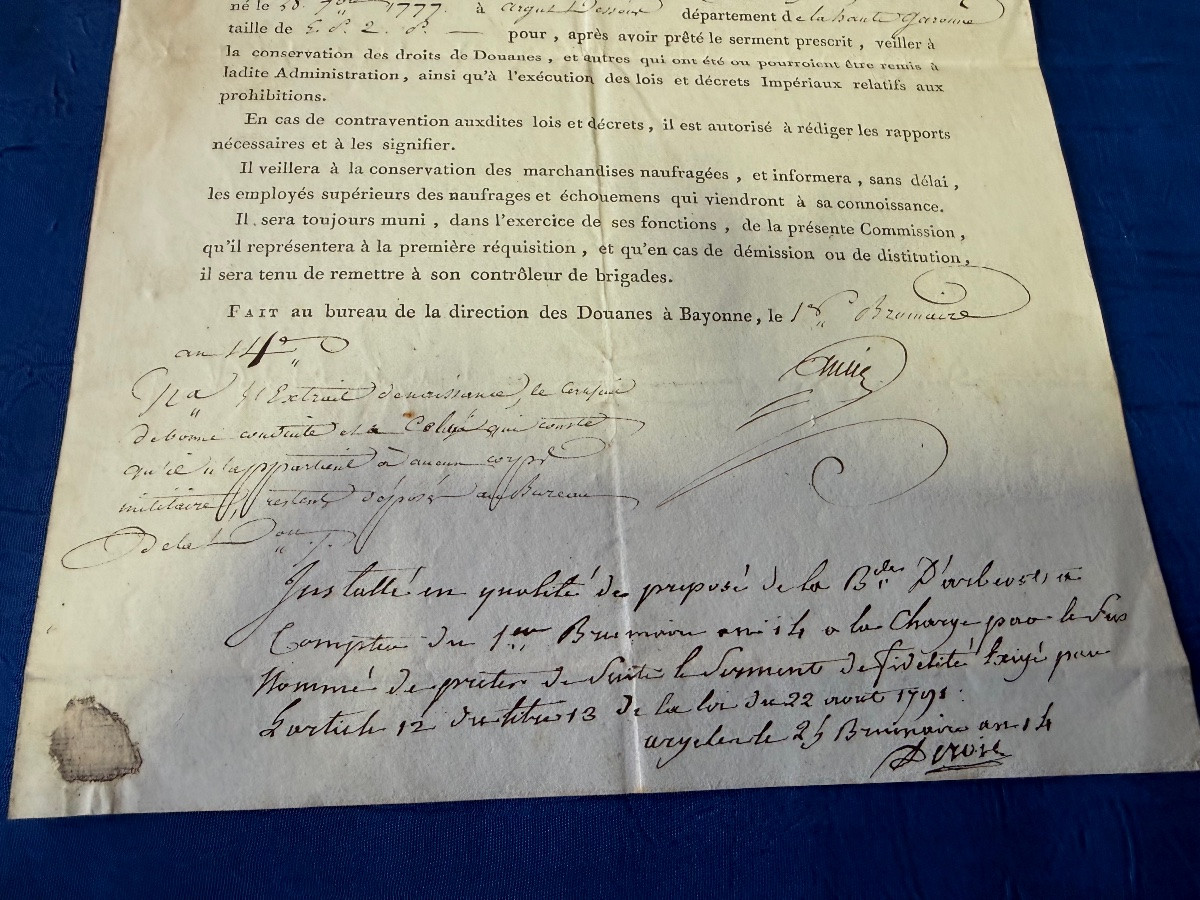 né le 7bre 1777. à argut Dessous département de la haute Garonne
taille de 5. P. 2. P. — pour, après avoir prêté le serment prescrit, veiller à
la conservation des droits de Douanes, et autres qui ont été ou pourroient être remis à
ladite Administration, ainsi qu'à l'exécution des lois et décrets Impériaux relatifs aux
prohibitions.
En cas de contravention auxdites lois et décrets, il est autorisé à rédiger les rapports
nécessaires et à les signifier.
Il veillera à la conservation des marchandises naufragées, et informera, sans délai,
les employés supérieurs des naufrages et échouemens qui viendront à sa connoissance.
Il sera toujours muni, dans l'exercice de ses fonctions, de la présente Commission,
qu'il représentera à la première réquisition, et qu'en cas de démission ou de distitution,
il sera tenu de remettre à son contrôleur de brigades.
FAIT au bureau de la direction des Douanes à Bayonne, le 1er Brumaire
an 14e
Na L'Extrait de naissance, le Certificat
de bonne conduite et a Celui qui conste
qu'il n'appartient à aucun corps
militaire, restent déposés au Bureau
De la Don
Installé en qualité de préposé de la Bde D'arbeost a
Compter du 1er Brumaire an 14 a la Charge par le Sus
Nommé de preter de Suite le Serment de fidélité Exigé par
L'article 12 du titre 13 de la loi du 22 aout 1791.
le 25 Brumaire an 14